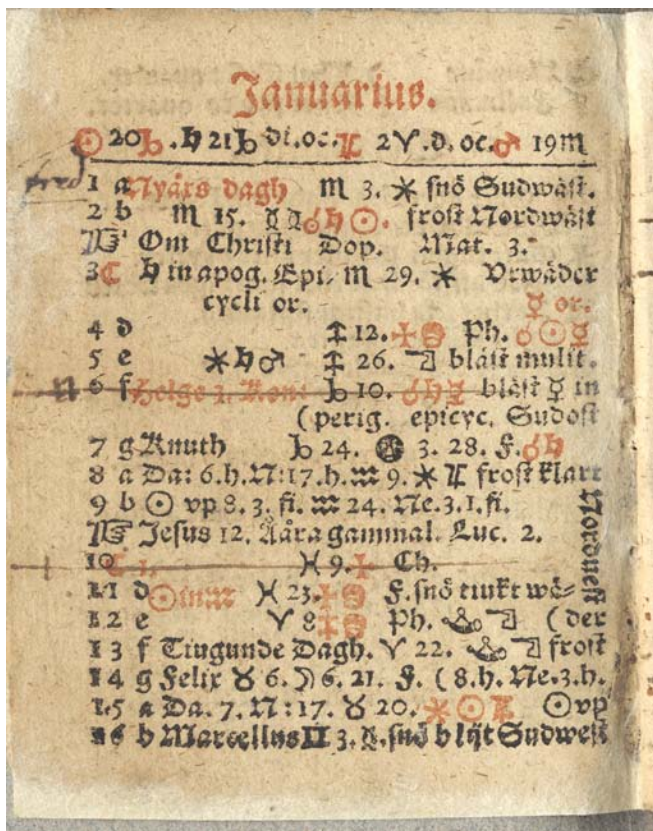 Januarius.
☉ 20 ♑. ♄ 21 ♑ di.oc. ♃ 2 ♈. d. oc. ♂ 19 ♏
1 a Nyåxs dagh ♏ 3. ⚹ snö Sudwäst.
2 b ♏ 15. ☌ ♄ ☉. frost Nordwäst
☞ Om Christi Dop. Mat. 3.
3 C ♄ in apog. Epi- ♏ 29. ⚹ Vrwäder
cycli or. ☿ or.
4 d ♐ 12. Ph. ☌ ☉ ☿
5 e ⚹ ♄ ♂ ♐ 26. bläst mulit.
6 f Helge 3. Kon: ♑ 10. ☌ ♄ ☿ bläst ☿ in
(perig. epicyc. Sudost
7 g Knuth ♑ 24. 3. 28. F. ☌ ♄
8 a Da: 6. h. N: 17. h. ♒ 9. ⚹ ♃ frost klart
9 b ☉ vp 8. 3. fi. ♒ 24. Ne. 3. 1. fi.
Nordnest
☞ Jesus 12. Ååra gammal. Luc. 2.
10 C 1. ♓ 9. Ch.
11 d ☉ in ♒ ♓ 23. F. snö tiukt wä-
12 e ♈ 8 Ph. (der
13 f Tiugunde Dagh. ♈ 22. frost
14 g Felix ♉ 6. ☽ 6. 21. F. (8. h. Ne. 3. h.
15 a Da. 7. N: 17. ♉ 20. ⚹ ☉ ♃ ☉ vp
16 b Marcellus ♊ 3. snö blijt Sudwest